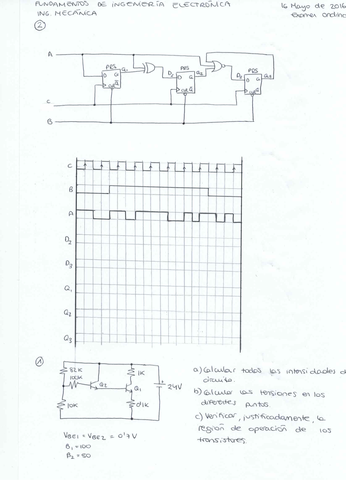 FUNDAMENTOS DE INGENIERÍA ELECTRÓNICA
14 Mayo de 2016
ING. MECÁNICA
Examen Ordinario
②
A
C
B
C
B
A
D2
D3
Q1
Q2
Q3
①
82K
100K
10K
Q2
1K
Q1
0'1K
24V
VBE1 = VBE2 = 0'7V
β1 = 100
β2 = 50
a) Calcular todas las intensidades del
circuito.
b) Calcular las tensiones en los
diferentes puntos
c) Verificar, justificadamente, la
región de operación de los
transistores.